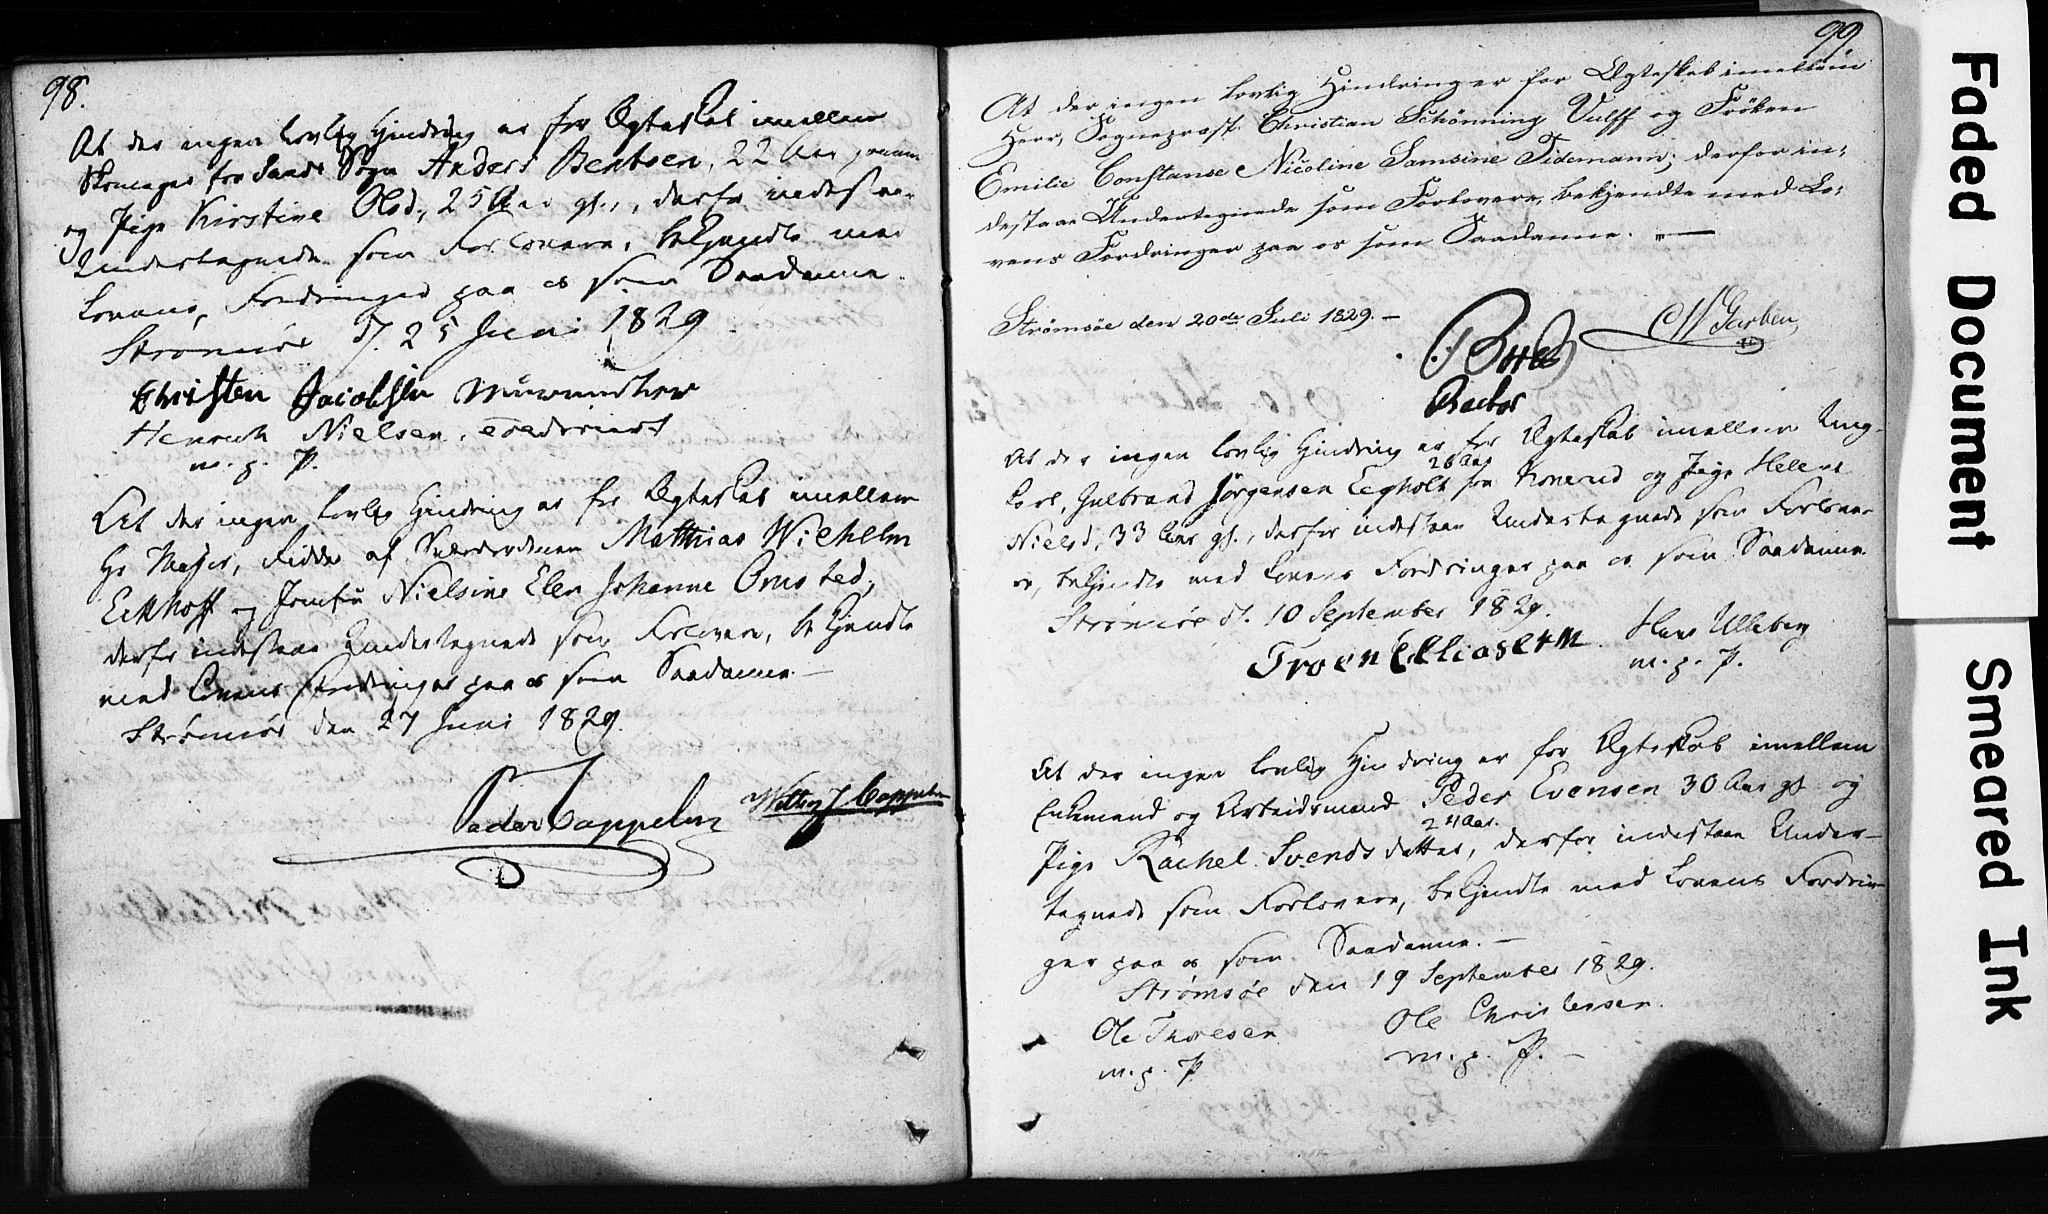 98.
At der ingen lovlig Hindring er for Ægteskab imellem
Skomager fra Sande Sogn Anders Bentsen, 22 Aar gammel
og Pige Kirstine Olsd., 25 Aar gl., derfor indestaae
Undertegnede som Forlovere, bekjendte med
Lovens Fordringer paa os som Saadanne.
Strømsøe d. 25 Juni 1829
Christen Jacobsen Muurmester
Henrich Nielsen
m. p. P.
At der ingen lovlig Hindring er for Ægteskab imellem
Hr Major, Ridder af Sværdordenen Matthias Wilhelm
Eckhoff og Jomfru Nielsine Elen Johanne Omsted,
derfor indestaae Undertegnede som Forlovere, bekjendte
med Lovens Fordringer paa os som Saadanne. —
Strømsøe den 27 Juni 1829.
Peder Cappelen
Cappelen
99.
At der ingen lovlig Hindringer for Ægteskab imellem
Herr, Sogneprost Christian Schönning Vulff og Frøken
Emilie Constanse Nicoline Samsine Tidemann; derfor in:
destaae Undertegnede som Forlovere, bekjendte med Lo:
vens Fordringer paa os som Saadanne. —
Strømsøe den 20de Juli 1829. —
Rector
At der ingen lovlig Hindring er for Ægteskab imellem Ung-
karl, Gulbrand Jørgensen Eegholt 26 Aar fra Konerud og Pige Helene
Nielsd, 33 Aar gl., derfor indestaae Undertegnede som Forlove-
re, bekjendte med Lovens Fordringer paa os som Saadanne.
Strømsøe d. 10 September 1829.
Hans Ulleberg
m. p. P.
At der ingen lovlig Hindring er for Ægteskab imellem
Enkemand og Arbeidsmand Peder Evensen 30 Aar gl og
Pige Rachel Svendsdatter, 24 Aar. derfor indestaae Under-
tegnede som Forlovere, bekjendte med Lovens Fordrin-
ger paa os som Saadanne. —
Strømsøe den 19 September 1829.
Ole Thoresen Ole Christensen.
m. p. P. m. p. P. —
Faded Document
Smeared Ink